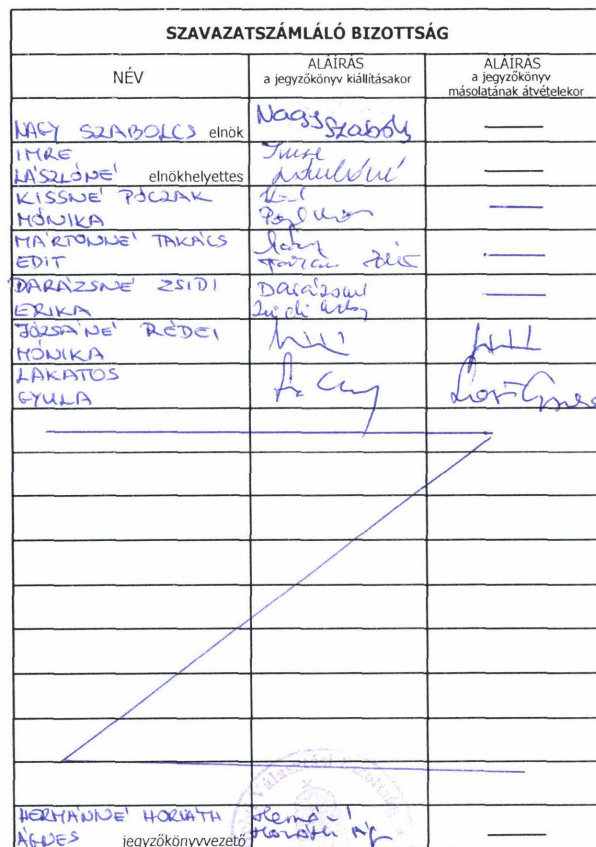 SZAVAZATSZÁMLÁLÓ BIZOTTSÁG
NÉV
ALÁÍRÁS
a jegyzőkönyv kiállításakor
ALÁÍRÁS
a jegyzőkönyv
másolatának átvételekor
NAGY SZABOLCS elnök
Nagy Szabolcs
IMRE
LÁSZLÓNÉ elnökhelyettes
Imre
Lászlóné
KISSNÉ PÓCZAK
MÓNIKA
MÁRTONNÉ TAKÁCS
EDIT
Takács Edit
DARÁZSNÉ ZSIDI
ERIKA
Darázsné
Zsidi Erika
JÓZSÁNÉ RÉDEI
MÓNIKA
LAKATOS
GYULA
HERMÁNNÉ HORVÁTH
ÁGNES jegyzőkönyvvezető
Hermánné
Horváth Ág